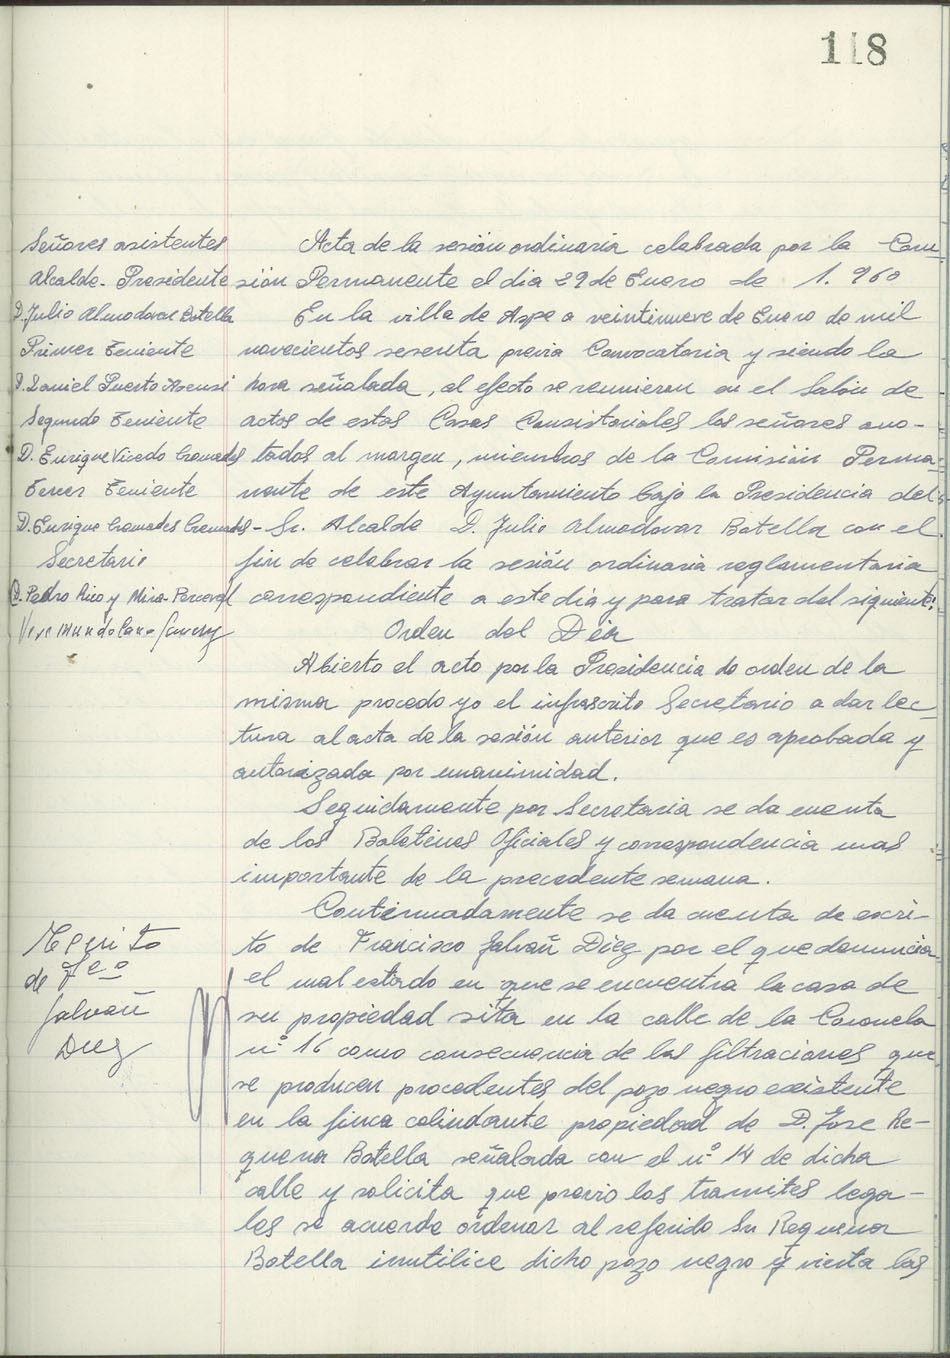 118
Señores asistentes
Alcalde-Presidente
D. Julio Almodovar Botella
Primer Teniente
D. Daniel Puerto Asensi
Segundo Teniente
D. Enrique Vicedo Cremades
Tercer Teniente
D. Enrique Cremades Cremades
Secretario
D. Pedro Rico y Mira-Perceval
Acta de la sesión ordinaria celebrada por la Comi
sión Permanente el dia 29 de Enero de 1.960
En la villa de Aspe a veintinueve de Enero de mil
novecientos sesenta previa Convocatoria y siendo la
hora señalada, al efecto se reunieron en el Salón de
actos de estas Casas Consistoriales los señores ano-
tados al margen, miembros de la Comisión Perma-
nente de este Ayuntamiento bajo la Presidencia del
Sr. Alcalde D. Julio Almodovar Botella con el
fin de celebrar la sesión ordinaria reglamentaria
correspondiente a este dia y para tratar del siguiente:
Orden del Dia
Abierto el acto por la Presidencia de orden de la
misma procedo yo el infrascrito Secretario a dar lec-
tura al acta de la sesión anterior que es aprobada y
autorizada por unanimidad.
Seguidamente por Secretaria se da cuenta
de los Boletines Oficiales y correspondencia mas
importante de la precedente semana.
Escrito
de Fco
Galvañ
Diez
Continuadamente se da cuenta de escri-
to de Francisco Galvañ Diez por el que denuncia
el mal estado en que se encuentra la casa de
su propiedad sita en la calle de la Coronela
nº 16 como consecuencia de las filtraciones que
se producen procedentes del pozo negro existente
en la finca colindante propiedad de D. Jose Re-
quena Botella señalada con el nº 14 de dicha
calle y solicita que previo los tramites lega-
les se acuerde ordenar al referido Sr Requena
Botella inutilice dicho pozo negro y vierta las